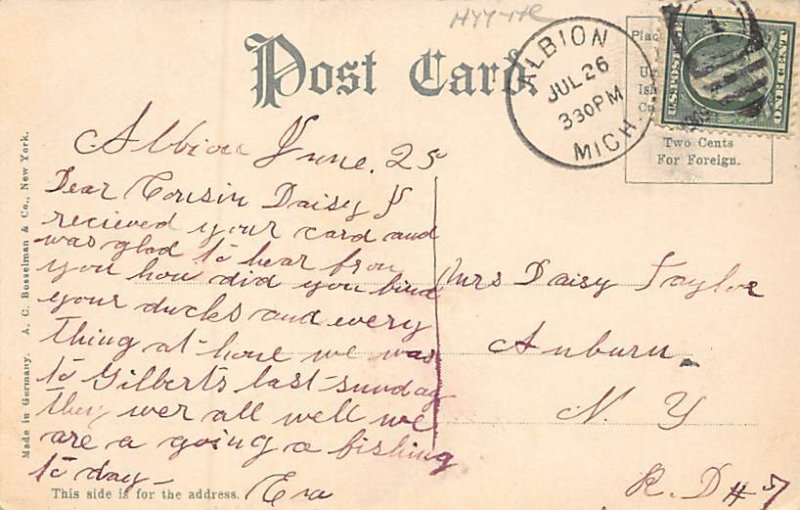 Post Card.
ALBION
JUL 26
330PM
MICH.
U.S. POSTAGE
ONE CENT
Two Cents
For Foreign.
Made in Germany. A. C. Bosselman & Co., New York.
Albion June. 25
Dear Cousin Daisy I
recieved your card and
was glad to hear from
you how did you find
your ducks and every
thing at home we was
to Gilberts last sunday
they wer all well we
are a going a fishing
to day—
Eva
This side is for the address.
Mrs Daisy Taylor
Auburn.
N. Y
R. D # 5